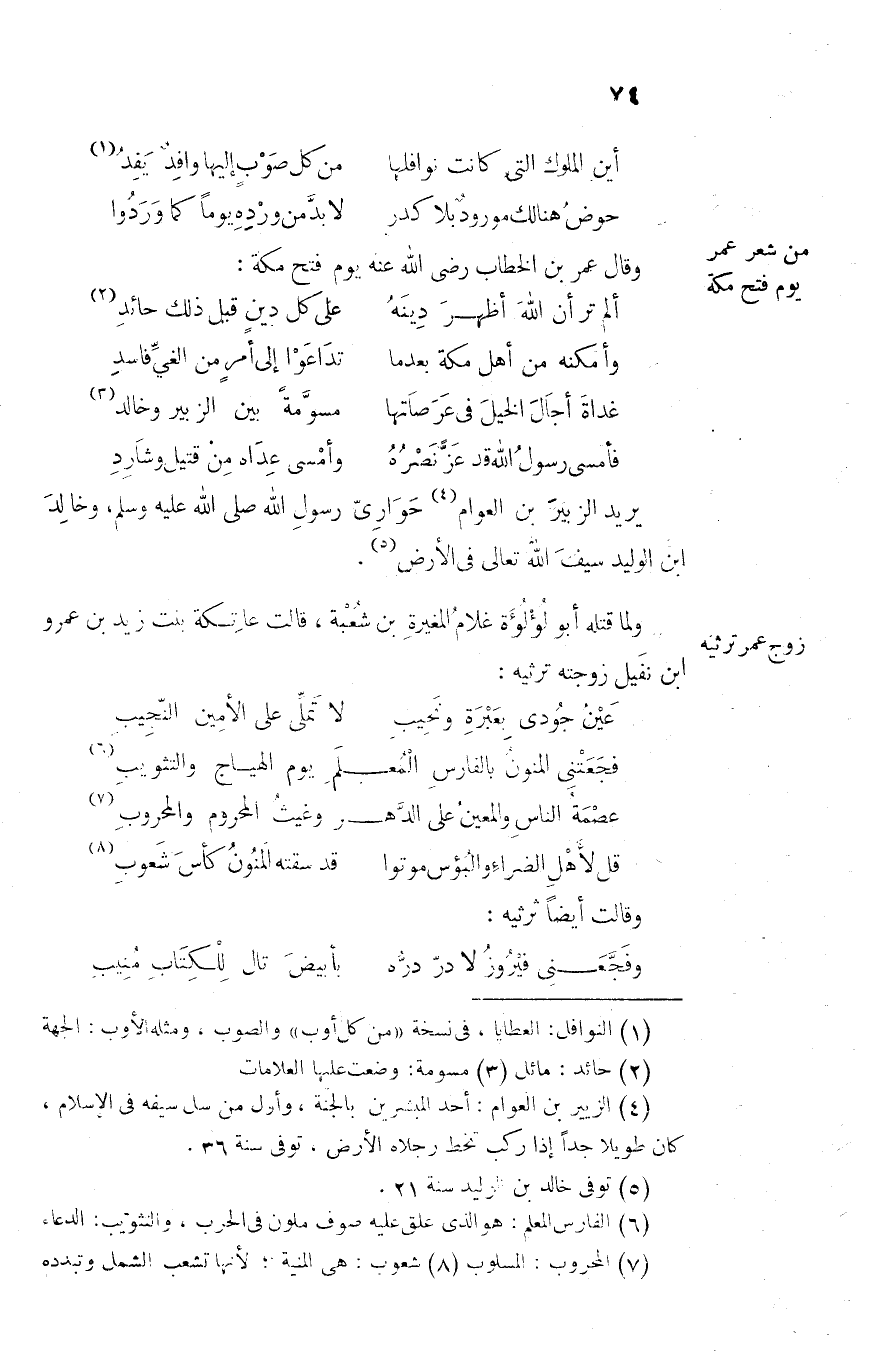 ٧٤
أين الملوك التى كانت نوافلها من كل صَوْبٍ إليها وافدٌ يَفِدُ (١)
حوضُ هنالك مورودٌ بلا كدر لا بدَّ من وِرْدِهِ يوماً كما وَرَدُوا
من شعر عمر
يوم فتح مكة
وقال عمر بن الخطاب رضى الله عنه يوم فتح مكة :
ألم تر أن اللهَ أظهرَ دِينَهُ على كل دينٍ قبل ذلك حائدِ (٢)
وأمكنه من أهل مكة بعدما تدَاعَوْا إلى أمرٍ من الغىِّ فاسدِ
غداةَ أجَالَ الخيلَ فى عَرَصَاتها مسوَّمةً بين الزبير وخالد (٣)
فأمسى رسولُ الله قد عَزَّ نَصْرُهُ وأمْسى عِدَاه مِنْ قتيل وشارِدِ
يريد الزبيرَ بن العوام (٤) حَوَارِىّ رسولِ الله صلى الله عليه وسلم، وخالِدَ
ابنَ الوليد سيفَ اللهِ تعالى فى الأرض (٥) .
زوج عمر ترثيه
ولما قتله أبو لُؤْلُؤَة غلامُ المغيرةِ بن شُعْبة ، قالت عاتِكة بنت زيد بن عمرو
ابن نفَيل زوجته ترثيه :
عَيْنُ جُودى بِعَبْرَةٍ ونَحِيبِ لا تَمَلِّى على الأمين النَّجِيبِ
فجَعَتْنِى المنونُ بالفارسِ الْمُعـلَمِ يوم الهياج والتثويبِ (٦)
عصْمَةُ الناسِ والمعينُ على الدَّهر وغيثُ المحروم والمحروبِ (٧)
قل لأَهْلِ الضراءِ والبُؤْسِ موتوا قد سقته المَنُونُ كأسَ شَعوبِ (٨)
وقالت أيضاً ترثيه :
وفَجَّعَـنِى فَيْرُوزُ لا درّ درُّه بأبيضَ تال لِلْكِتَابِ مُنِيبِ
(١) النوافل: العطايا ، فى نسخة «من كل أوب» والصوب ، ومثله الأوب : الجهة
(٢) حائد : مائل (٣) مسومة: وضعت عليها العلامات
(٤) الزبير بن العوام : أحد المبشرين بالجنة ، وأول من سل سيفه فى الإسلام ،
كان طويلا جداً إذا ركب تخط رجلاه الأرض . توفى سنة ٣٦ .
(٥) توفى خالد بن الوليد سنة ٢١ .
(٦) الفارس المعلم : هو الذى علق عليه صوف ملون فى الحرب ، والتثويب: الدعاء
(٧) المحروب : المسلوب (٨) شعوب : هى المنية ؛ لأنها تشعب الشمل وتبدده